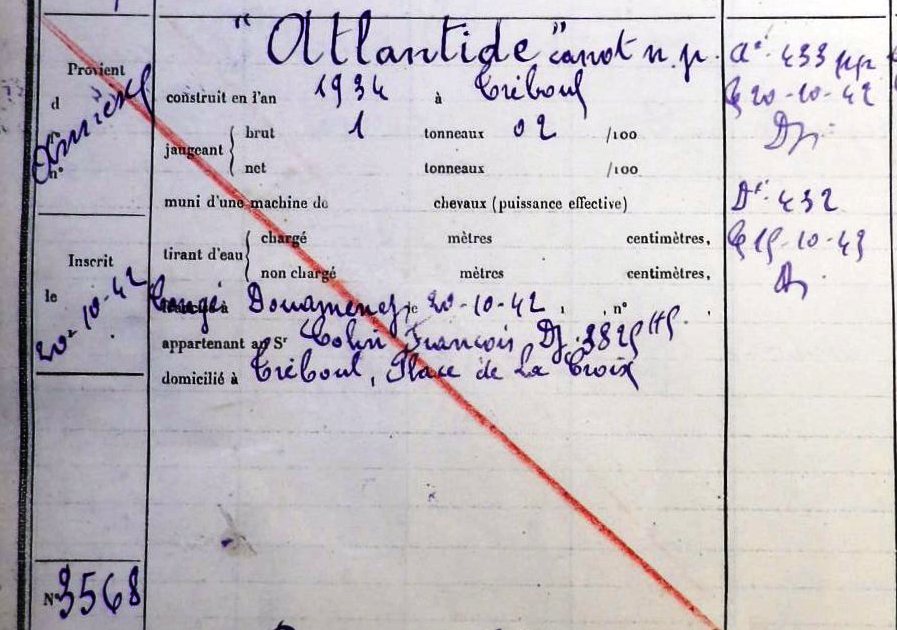 "Atlantide" canot n.p.
Provient
d
n°
construit en l'an 1934 à Tréboul
jaugeant { brut 1 tonneaux 02 /100
net tonneaux /100
muni d'une machine de chevaux (puissance effective)
tirant d'eau { chargé mètres centimètres,
non chargé mètres centimètres,
Congé Douarnenez le 20-10-42, n°
appartenant au Sr Colin François Dz. 3825 HS.
domicilié à Tréboul, Place de La Croix
Inscrit
le
20-10-42
N° 3568
An: 433
le 20-10-42
Dz.
Dt: 432
le 15-10-43
Dz.